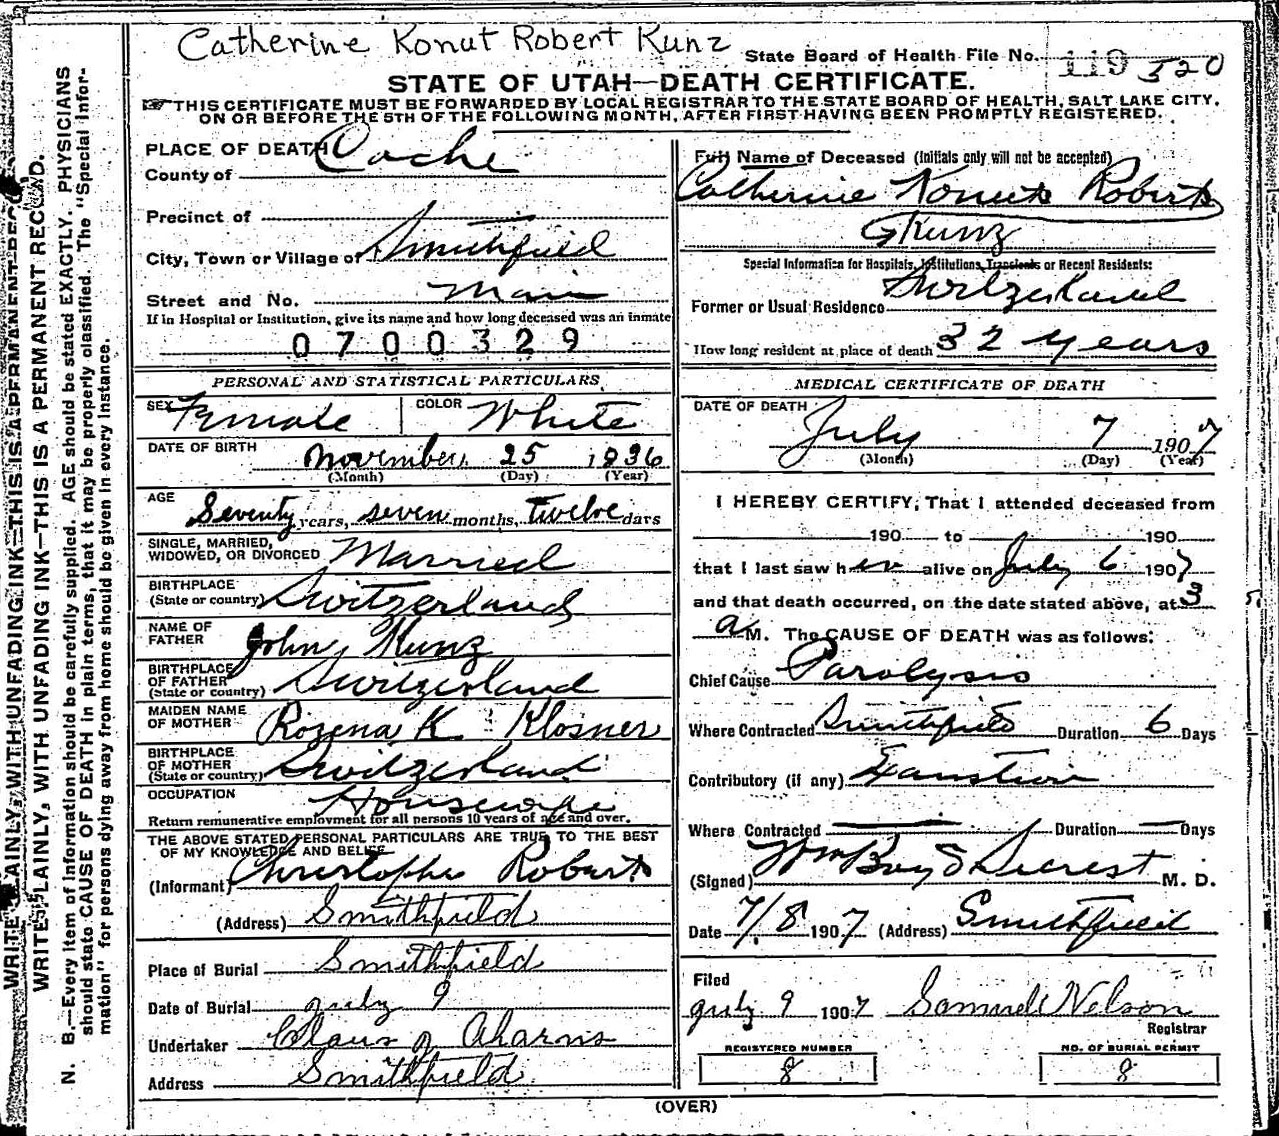 Catherine Konut Robert Kunz
State Board of Health File No. 119 520
STATE OF UTAH—DEATH CERTIFICATE.
THIS CERTIFICATE MUST BE FORWARDED BY LOCAL REGISTRAR TO THE STATE BOARD OF HEALTH, SALT LAKE CITY,
ON OR BEFORE THE 5TH OF THE FOLLOWING MONTH, AFTER FIRST HAVING BEEN PROMPTLY REGISTERED.
PLACE OF DEATH
County of Cache
Precinct of
City, Town or Village of Smithfield
Street and No. Main
If in Hospital or Institution, give its name and how long deceased was an inmate
0700329
PERSONAL AND STATISTICAL PARTICULARS
SEX Female COLOR White
DATE OF BIRTH November 25 1836
(Month) (Day) (Year)
AGE Seventy years, seven months, twelve days
SINGLE, MARRIED,
WIDOWED, OR DIVORCED Married
BIRTHPLACE
(State or country) Switzerland
NAME OF
FATHER John Kunz
BIRTHPLACE
OF FATHER
(State or country) Switzerland
MAIDEN NAME
OF MOTHER Rozena K Klosner
BIRTHPLACE
OF MOTHER
(State or country) Switzerland
OCCUPATION Housewife
Return remunerative employment for all persons 10 years of age and over.
THE ABOVE STATED PERSONAL PARTICULARS ARE TRUE TO THE BEST
OF MY KNOWLEDGE AND BELIEF
(Informant) Christophe Roberts
(Address) Smithfield
Place of Burial Smithfield
Date of Burial July 9
Undertaker Claus J Aharns
Address Smithfield
Full Name of Deceased (Initials only will not be accepted)
Catherine Konuts Roberts
Kunz
Special Information for Hospitals, Institutions, Transients or Recent Residents:
Former or Usual Residence Switzerland
How long resident at place of death 32 years
MEDICAL CERTIFICATE OF DEATH
DATE OF DEATH
July 7 1907
(Month) (Day) (Year)
I HEREBY CERTIFY, That I attended deceased from
190 to 190
that I last saw her alive on July 6 1907
and that death occurred, on the date stated above, at 3
a M. The CAUSE OF DEATH was as follows:
Chief Cause Paralysis
Where Contracted Smithfield Duration 6 Days
Contributory (if any)
Where Contracted Duration Days
(Signed) Wm Boyd Secrest M. D.
Date 7/8 1907 (Address) Smithfield
Filed
July 9 1907 Samuel Nelson
Registrar
REGISTERED NUMBER
8
NO. OF BURIAL PERMIT
8
(OVER)
WRITE PLAINLY, WITH UNFADING INK—THIS IS A PERMANENT RECORD.
WRITE PLAINLY, WITH UNFADING INK—THIS IS A PERMANENT RECORD.
N. B.—Every item of information should be carefully supplied. AGE should be stated EXACTLY. PHYSICIANS
should state CAUSE OF DEATH in plain terms, that it may be properly classified. The "Special Infor-
mation" for persons dying away from home should be given in every instance.